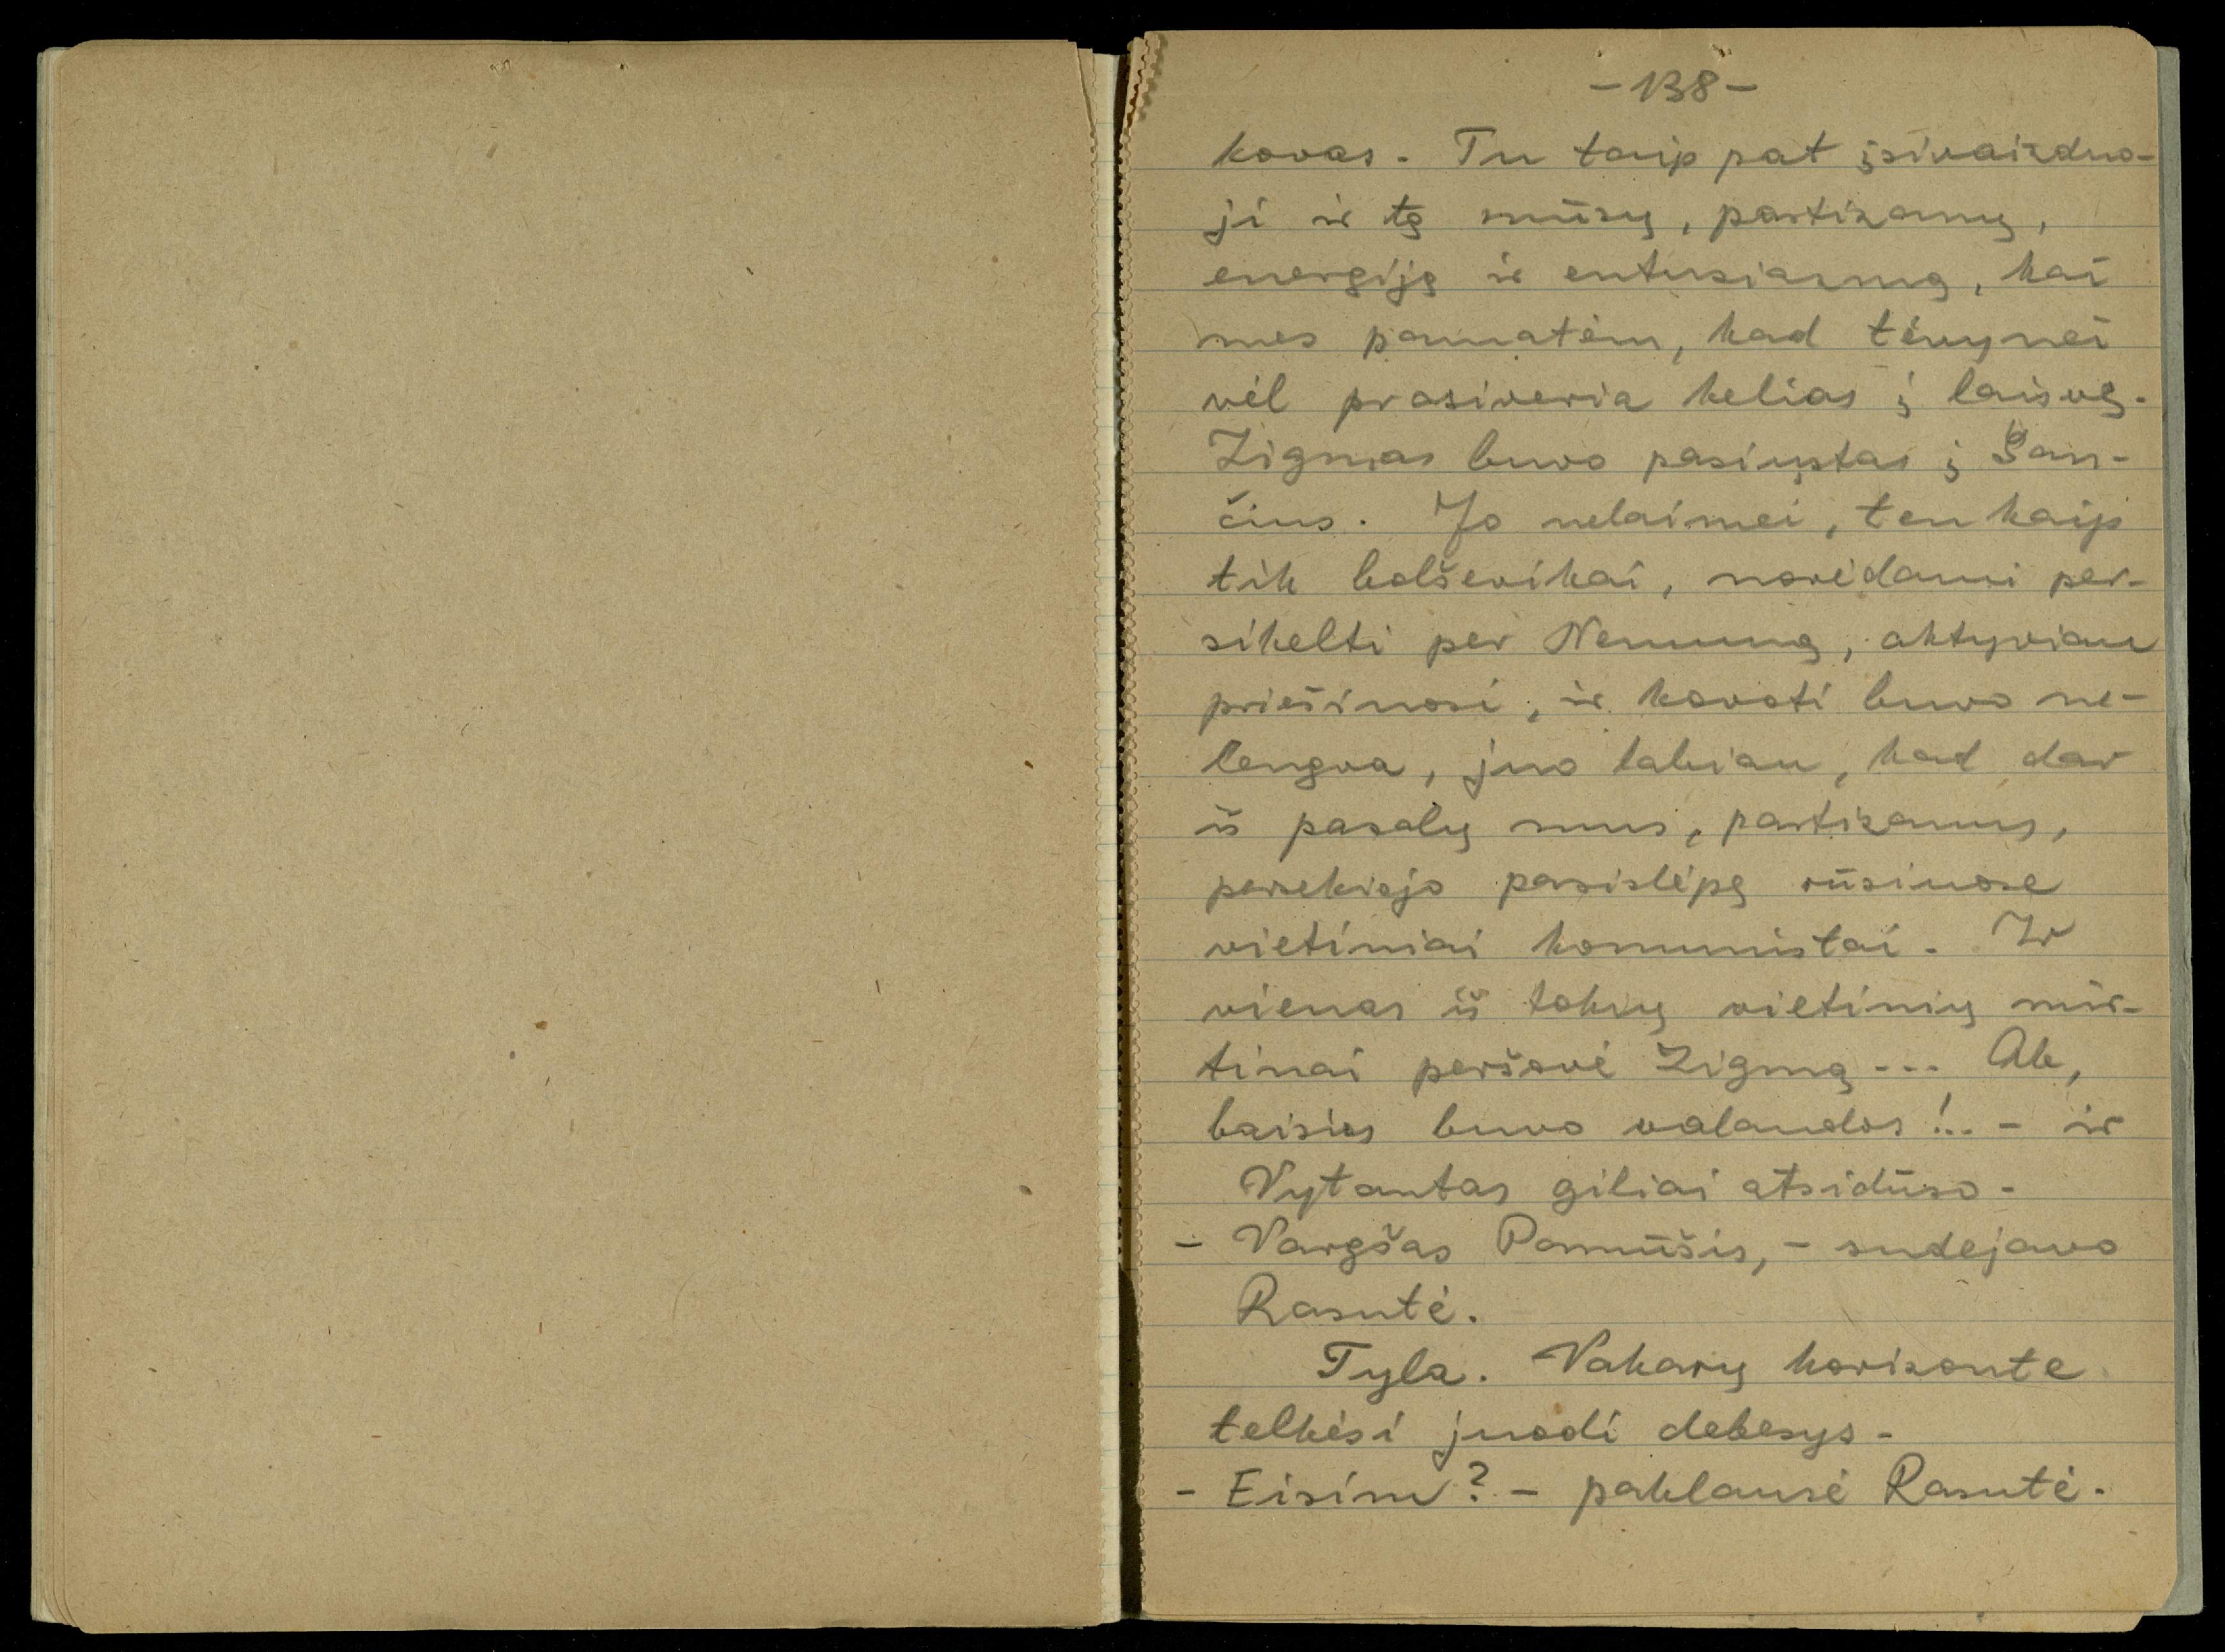 -138-
kovas. Tu taip pat įsivaizduo-
ji ir tą mūsų, partizanų,
energiją ir entusiazmą, kai
mes pamatėm, kad tėvynei
vėl prasiveria kelias į laisvę.
Zigmas buvo pasiųstas į Šan-
čius. Jo nelaimei, ten kaip
tik bolševikai, norėdami per-
sikelti per Nemuną, aktyviau
priešinosi, ir kovoti buvo ne-
lengva, juo labiau, kad dar
iš pasalų mus, partizanus,
persekiojo pasislėpę rūsiuose
vietiniai komunistai. Ir
vienas iš tokių vietinių mir-
tinai peršovė Zigmą... Ak,
baisios buvo valandos!.. - ir
Vytautas giliai atsidūso.
- Vargšas Pamūšis, - sudejavo
Rasutė.
Tyla. Vakarų horizonte
telkėsi juodi debesys.
- Eisim? - paklausė Rasutė.